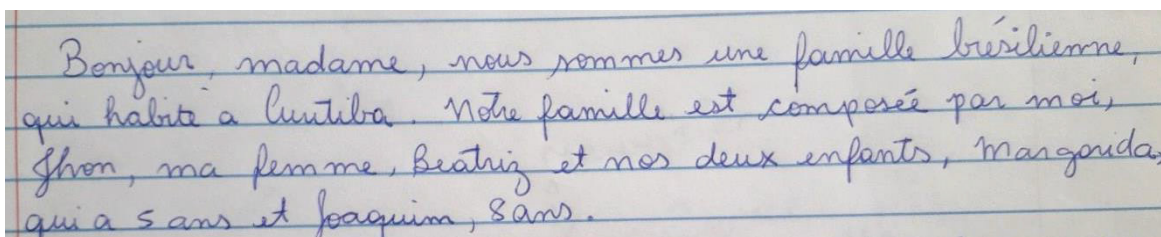 Bonjour, madame, nous sommes une famille brésilienne,
qui habite a Curitiba. Notre famille est composée par moi,
Jhon, ma femme, Beatriz et nos deux enfants, Margarida,
qui a 5 ans et Joaquim, 8 ans.